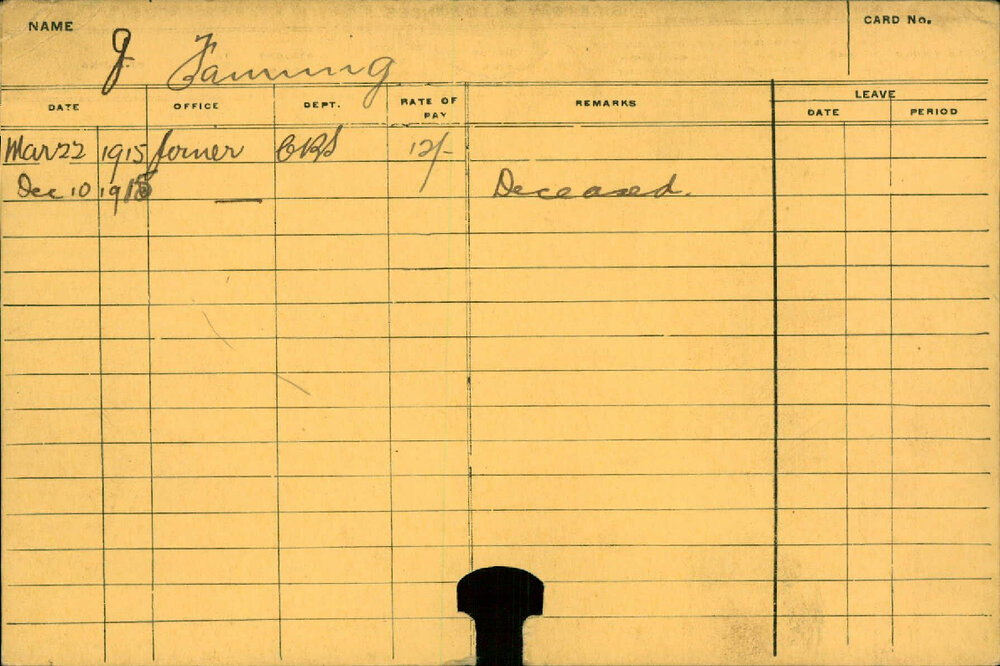 NAME J Fanning CARD No.
DATE OFFICE DEPT. RATE OF PAY REMARKS LEAVE DATE PERIOD
Mar 22 1915 Joiner 12/-
Dec 10 — Deceased.